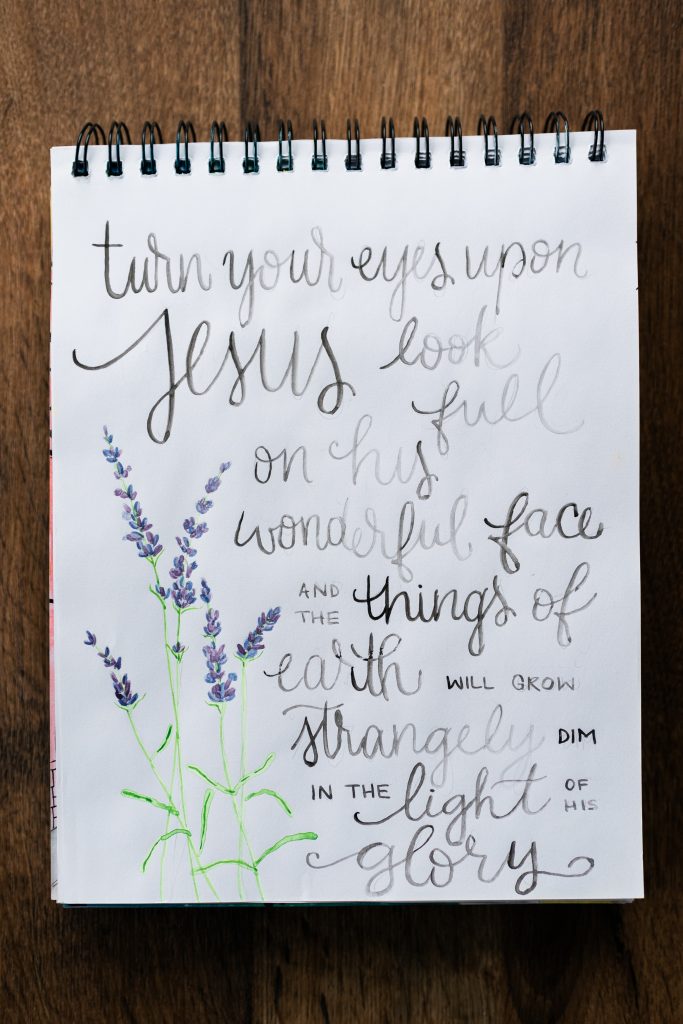 turn your eyes upon
Jesus look
full
on his
wonderful face
AND THE things of
earth WILL GROW
strangely DIM
IN THE light OF HIS
glory